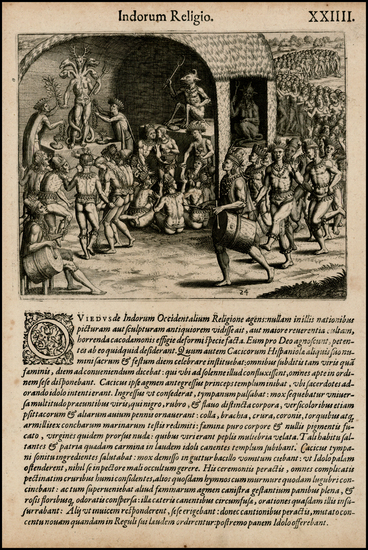 Indorum Religio.
XXIIII.
24
OVIEDUS de Indorum Occidentalium Religione agens: nullam in illis nationibus
picturam aut sculpturam antiquiorem vidisse ait, aut maiore reverentia cultam,
horrenda cacodæmonis effigie deformi specie facta. Eum pro Deo agnoscunt, peten-
tes ab eo quidquid desiderant. Quum autem Cacicorum Hispaniola aliquis sio nu-
mini sacrum & festum diem celebrare instituebat: omnibus subditis tam viris quã
fœminis, diem ad conveniendum dicebat: qui ubi ad solenne illud confluxissent, omnes apte in ordi-
nem sese disponebant. Cacicus ipse agmen antegressus princeps templum inibat, ubi sacerdotes ad-
orando idolo intenti erant. Ingressus ut considerat, tympanum pulsabat: mox sequebatur univer-
sa multitudo præeuntibus viris, qui nigro, rubro, & flavo distincta corpora, versicoloribus etiam
psittacorum & aliarum avium pennis ornaverant: colla, brachia, crura, coronis, torquibus atq;
armillis ex concharum marinarum testis redimiti: fœmina puro corpore & nullis pigmentis fu-
cato, virgines quidem prorsus nudæ: quibus vir erant peplis muliebria velata. Tali habitu sal-
tantes & patria quadam carmina in laudem idoli canentes templum subibant. Cacicus tympa-
ni sonitu ingredientes salutabat: mox demisso in guttur bacillo vomitum ciebant: ut Idolo palam
ostenderent, nihil se in pectore mali occultum gerere. His ceremoniis peractis, omnes complicatis
pectinatim cruribus humi considentes, alios quosdam hymnos cum murmure quodam lugubri con-
cinebant: actum superveniebat aliud fœminarum agmen canistra gestantium panibus plena, &
rosis floribusq, odoratis conspersa: illa cæteris canentibus circumfusa, orationes quasdam insu-
surrabant: Alij ut invicem responderent, sese erigebant: donec cantionibus peractis, mutato con-
centu novam quandam in Reguli sui laudem ordirentur: postremo panem Idolo offerebant.